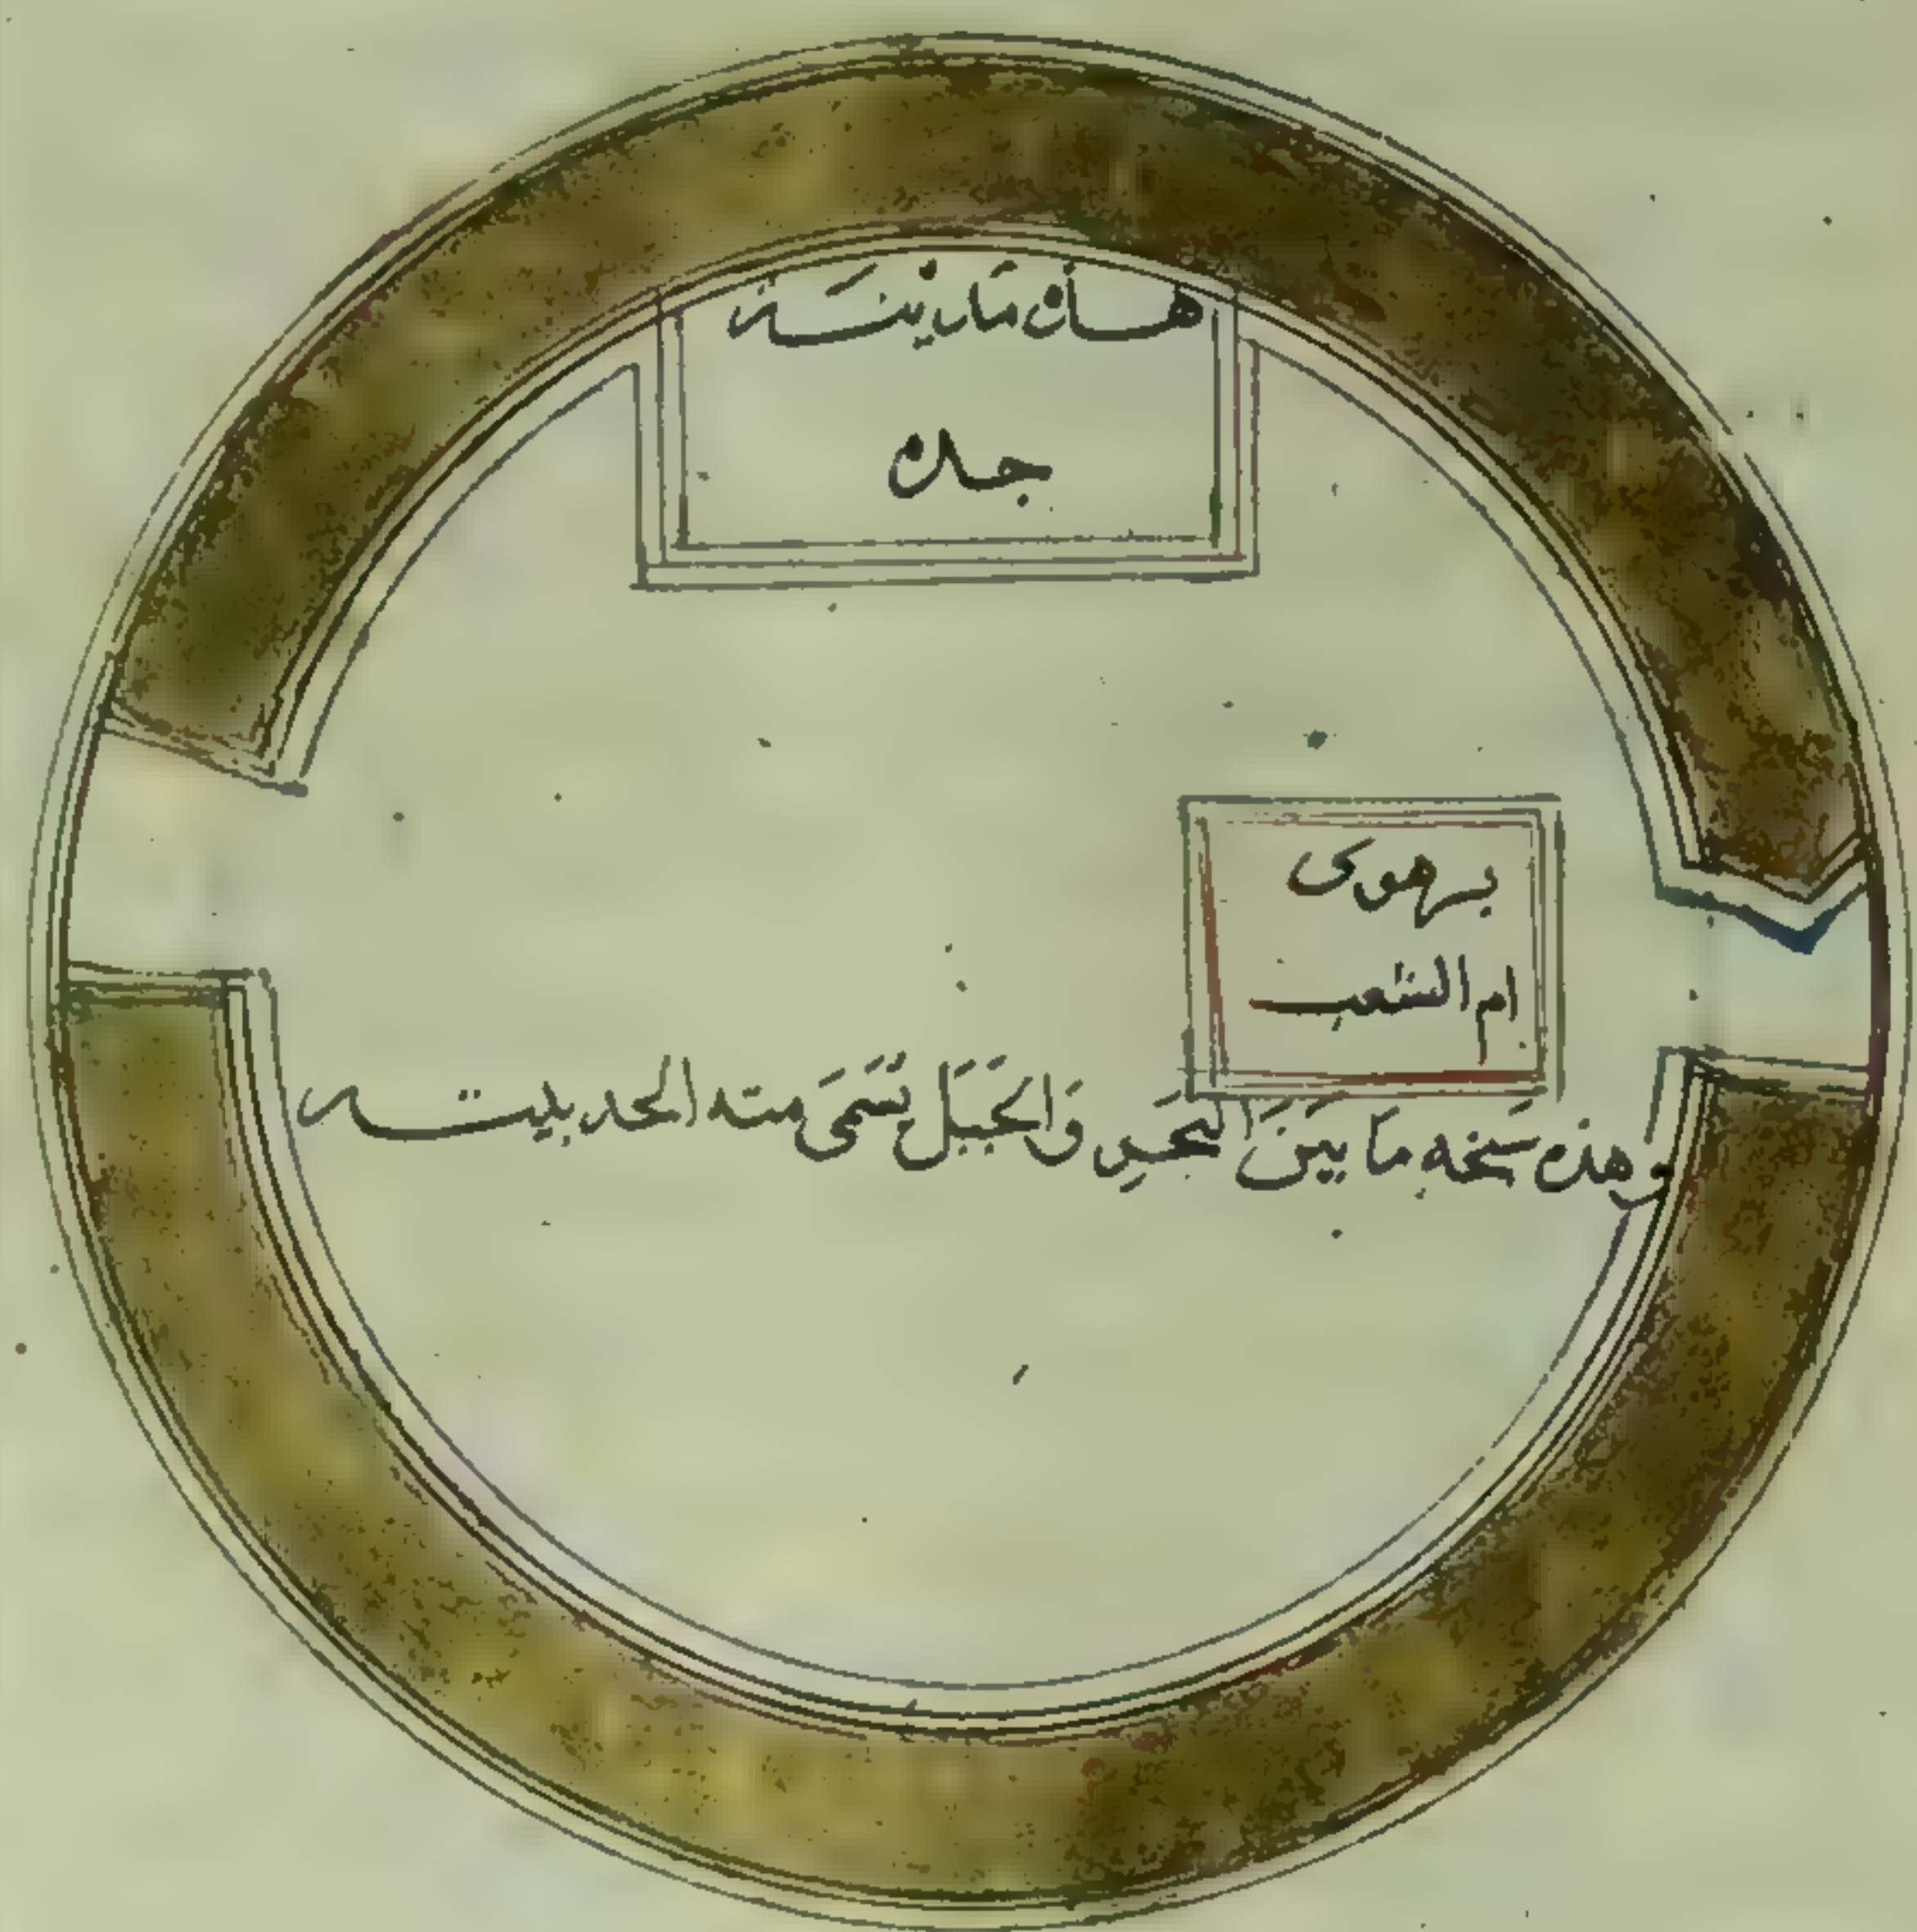 هذه مدينة
جده
بر هوى
ام الشعب
وهذه سبخه ما بين البحر والجبل تسمى منه الحديبيه